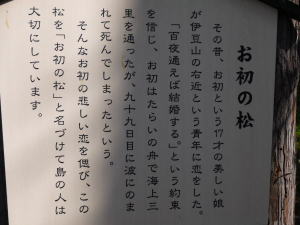 お初の松
その昔、お初という17才の美しい娘
が伊豆山の右近という青年に恋をした。
「百夜通えば結婚する。」という約束
を信じ、お初はたらいの舟で海上三
里を通ったが、九十九日目に波にのま
れて死んでしまったという。
そんなお初の悲しい恋を偲び、この
松を「お初の松」と名づけて島の人は
大切にしています。